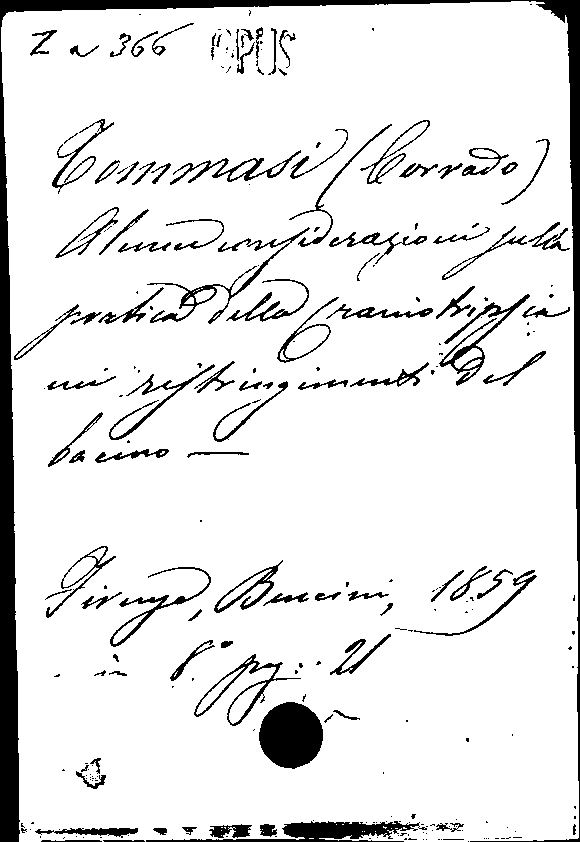 Z a 366 OPUS
Tommasi (Corrado)
Alcune considerazioni sulla
pratica della Craniotripsia
nei ristringimenti del
bacino —
Firenze, Bencini, 1859
in 8° pag: 21